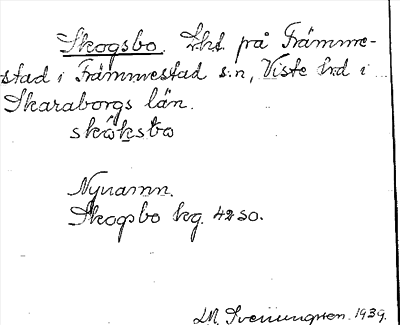 Skogsbo. Lht på Främme-
stad i Främmestad s:n, Viste hd i
Skaraborgs län.
skỏksbo
Nynamn.
Skogsbo kg. 4230.
M. Svenungsson. 1939.